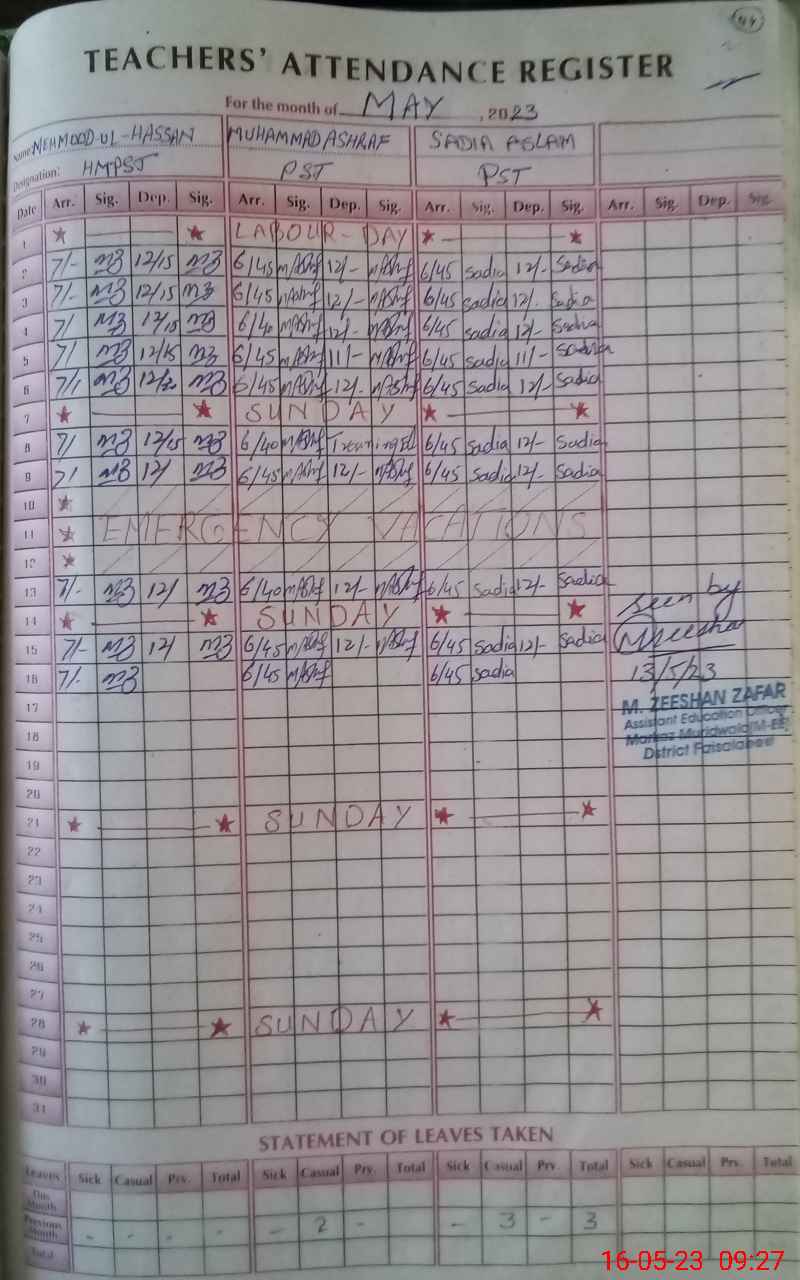 44
TEACHERS' ATTENDANCE REGISTER
For the month of MAY, 2023
Name: MEHMOOD-UL-HASSAN MUHAMMAD ASHRAF SADIA ASLAM
Designation: HMPST PST PST
Date Arr. Sig. Dep. Sig. Arr. Sig. Dep. Sig. Arr. Sig. Dep. Sig. Arr. Sig. Dep. Sig.
1 LABOUR-DAY
2 7/- 12/15 6/45 mAshf 12/- mAshf 6/45 sadia 12/- Sadia
3 7/- 12/15 6/45 mAshf 12/- mAshf 6/45 sadia 12/- Sadia
4 7/ 12/15 6/40 mAshf 12/- mAshf 6/45 sadia 12/- Sadia
5 7/ 12/15 6/45 mAshf 11/- mAshf 6/45 sadia 11/- Sadia
6 7/ 6/45 mAshf 12/- mAshf 6/45 sadia 12/- Sadia
7 SUNDAY
8 7/ 12/15 6/40 mAshf 6/45 sadia 12/- Sadia
9 7/ 12/ 6/45 mAshf 12/- mAshf 6/45 sadia 12/- Sadia
10
11 EMERGENCY VACATIONS
12
13 7/- 12/ 6/40 mAshf 12/- mAshf 6/45 sadia 12/- Sadia
14 SUNDAY
15 7/- 12/ 6/45 mAshf 12/- mAshf 6/45 sadia 12/- Sadia
16 7/- 6/45 mAshf 6/45 sadia
17
18
19
20
21 SUNDAY
22
23
24
25
26
27
28 SUNDAY
29
30
31
seen by
13/5/23
M. ZEESHAN ZAFAR
Assistant Education Officer
Markaz Muridwala(M-EE)
District Faisalabad
STATEMENT OF LEAVES TAKEN
Leaves Sick Casual Prv. Total Sick Casual Prv. Total Sick Casual Prv. Total Sick Casual Prv. Total
This Month
Previous Month - - - - - 2 - - 3 - 3
Total
16-05-23 09:27